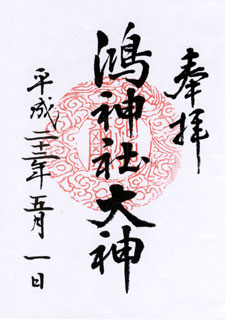 奉拝
鴻神社大神
平成二十二年五月一日